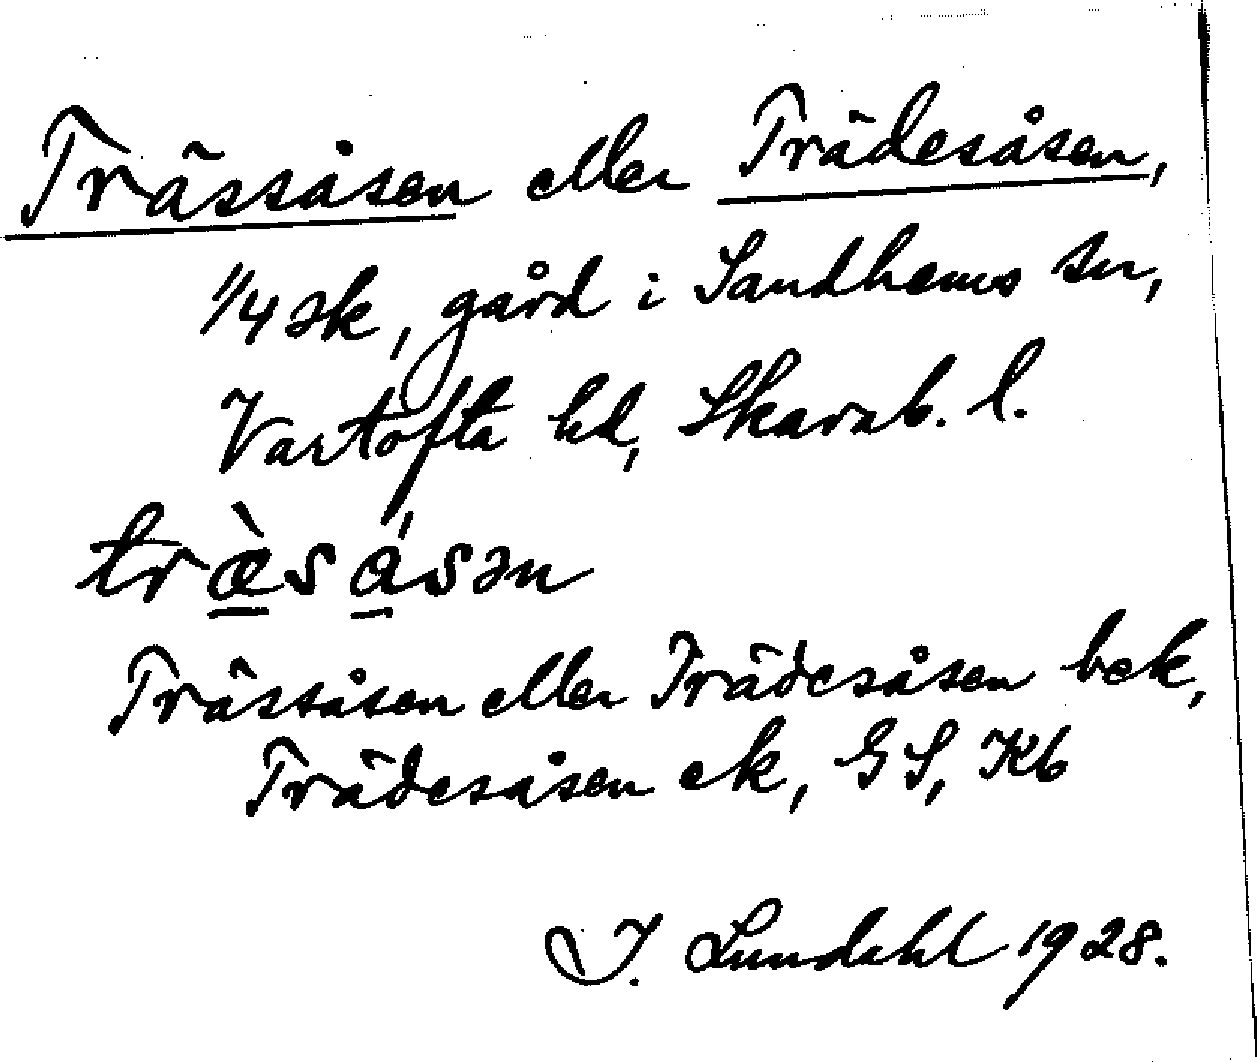 Trässåsen eller Trädesåsen,
1/4 sk, gård i Sandhems sn,
Vartofta hd, Skarab. l.
træ̀sásən
Trässåsen eller Trädesåsen bek,
Trädesåsen ek, GS, Kb
I. Lundahl 1928.